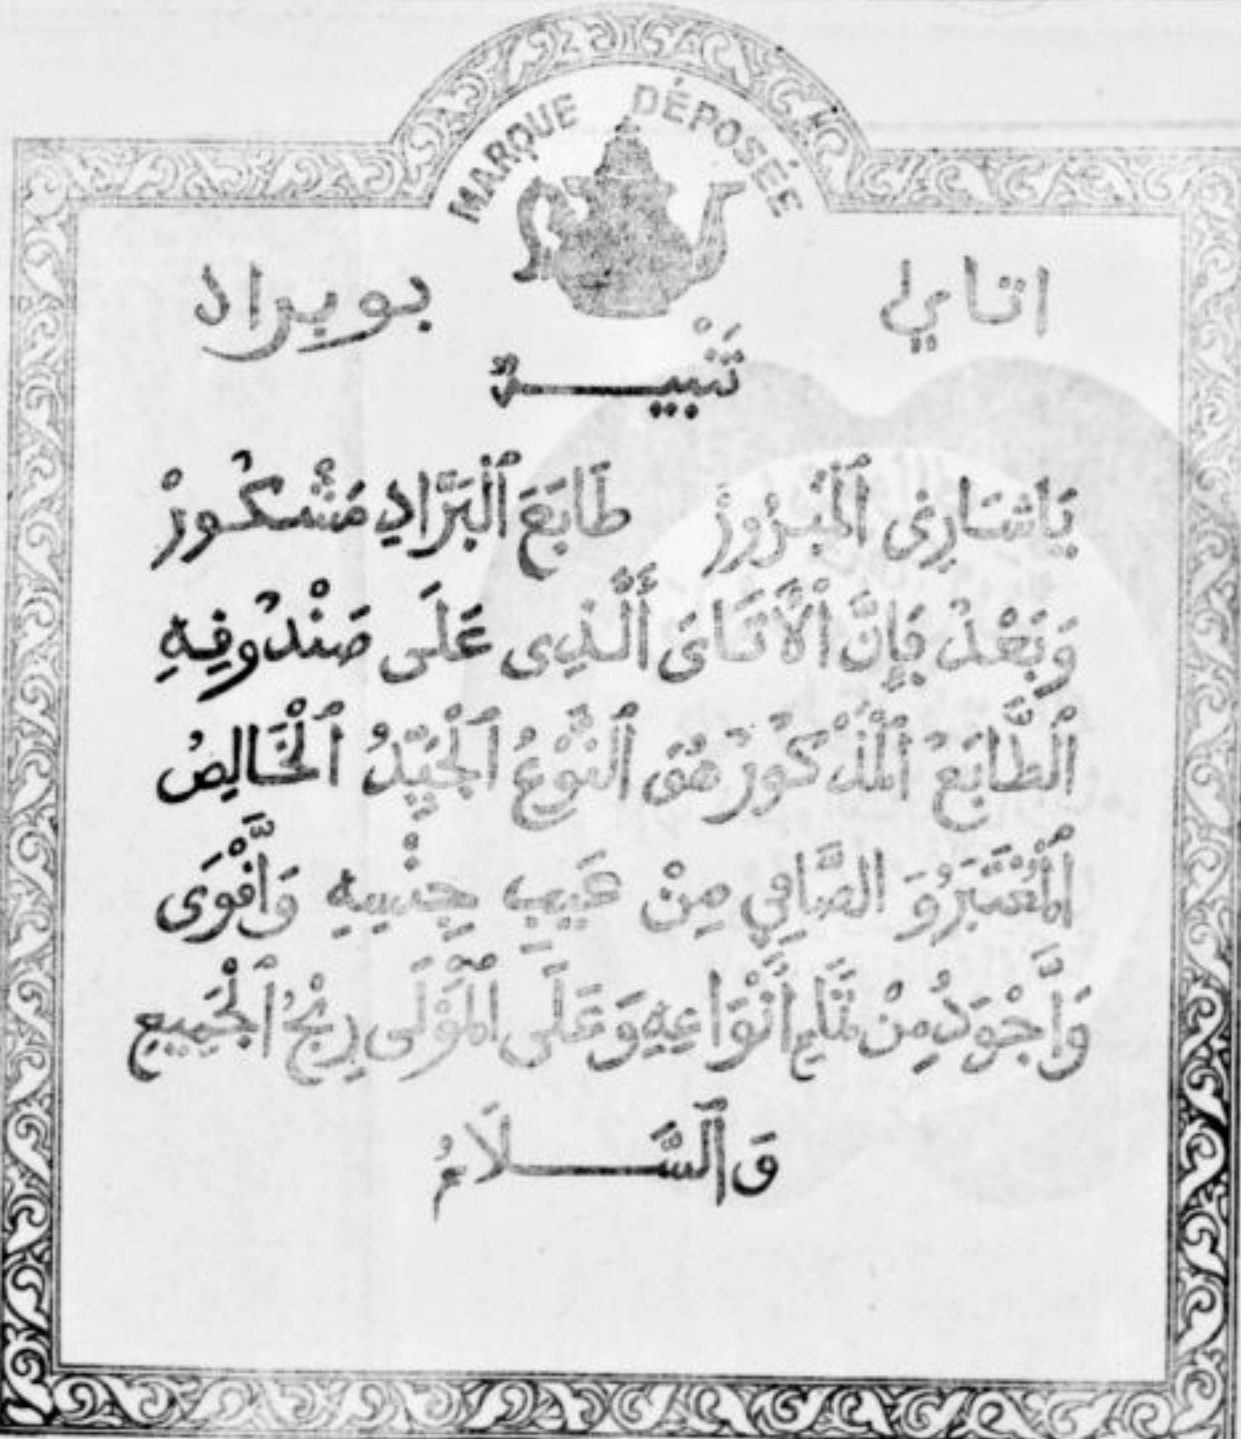 MARQUE DÉPOSÉE
اتاي بوبراد
تَنْبِيــــهٌ
يَاشَارِي ٱلْمَبْرُورْ طَابَعَ ٱلْبَرَّادِ مَشْكُورْ
وَبَعْدُ ڢَإِنَّ ٱلْأَتَاىَ ٱلَّذِى عَلَى صَنْدُوڧِهِ
ٱلطَّابَعُ ٱلْمَذْكُورُ هُوَ ٱلنَّوْعُ ٱلْجَيِّدُ ٱلْخَالِصُ
ٱلْمُعْتَبَرُ وَ الصَّاڢِي مِنْ عَيْبِ جِنْسِهِ وَأَڧْوَى
وَأَجْوَدُ مِنْ أَنْوَاعِهِ وَعَلَى ٱلْمَوْلَى رِبْحُ ٱلْجَمِيعِ
وَٱلسَّــــلَامُ